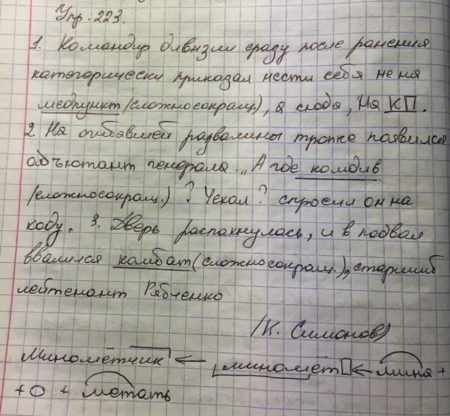 Упр. 223.
1. Командир дивизии сразу после ранения
категорически приказал нести себя не на
медпункт (сложносокращ), а сюда, на КП.
2 На огибавшей развалины тропке появился
адъютант генерала. „А где комдив
(сложносокращ.)? Уехал? спросил он на
ходу. 3. Дверь распахнулась, и в подвал
ввалился комбат (сложносокращ.), старший
лейтенант Рябченко
(К. Симонов)
Минометчик ← миномет ← мина +
+ о + метать